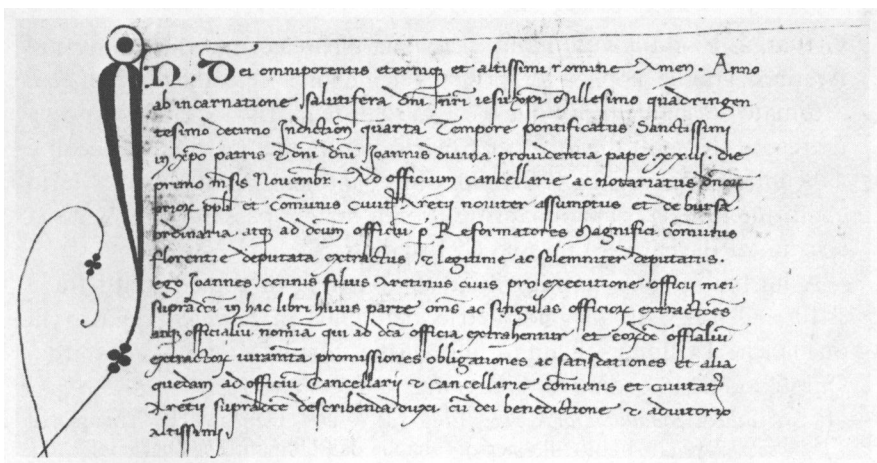 IN Dei omnipotentis eterniq; et altissimi nomine Amen . Anno
ab incarnatione salutifera dñi nr̃i iesu xp̃i Millesimo quadringen
tesimo decimo Indiction quarta Tempore pontificatus Sanctissimi
in xp̃o patris & dñi dñi Ioannis divina providentia pape .xxiij. die
primo mẽsis Novembr̃ . Ad officium cancellarie ac notariatus dñoꝝ
prioꝝ ppl̃i et comunis civit̃ Aretij noviter assumptus et de bursa
ordinaria atq; ad dictum officiũ p̲ Reformatores magnifici comunis
florentie deputata extractus & legitime ac solemniter deputatus .
ego Ioannes cennis filius Aretinus civis pro executione officij mei
supradicti in hac libri huius parte om̃s ac singulas officioꝝ extractões
atq; officialiũ nomĩa qui ad dc̃a officia extrahentur et eoꝝdẽ offitialiũ
extractoꝝ iuramẽta promissiones obligationes ac satisdationes et alia
quedam ad officiũ Cancellarij & cancellarie comunis et civitat̃
Aretij supradicte describenda duxi cũ dei benedictione & adiutorio
altissimi,